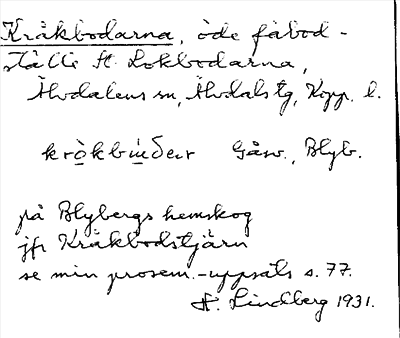 Kråkbodarna, öde fäbod-
ställe st. Lokbodarna,
Älvdalens sn, Älvdals tg, Kopp. l.
Gåsv., Blyb.
på Blybergs hemskog
jfr Kråkbodstjärn
se min prosem.-uppsats s. 77.
H. Lindberg 1931.